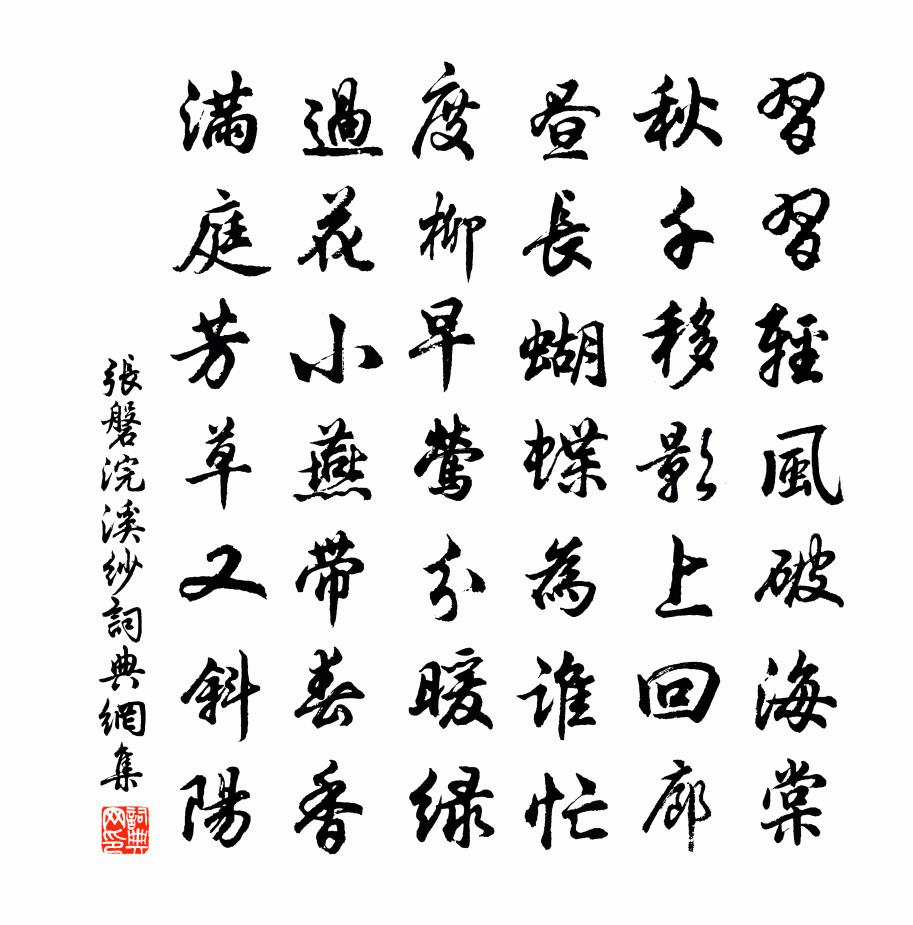 習習輕風破海棠
秋千移影上回廊
昼長蝴蝶為誰忙
度柳早鶯分暖緑
過花小燕帯春香
满庭芳草又斜陽
張磐浣溪紗詞典網集
詞典网印